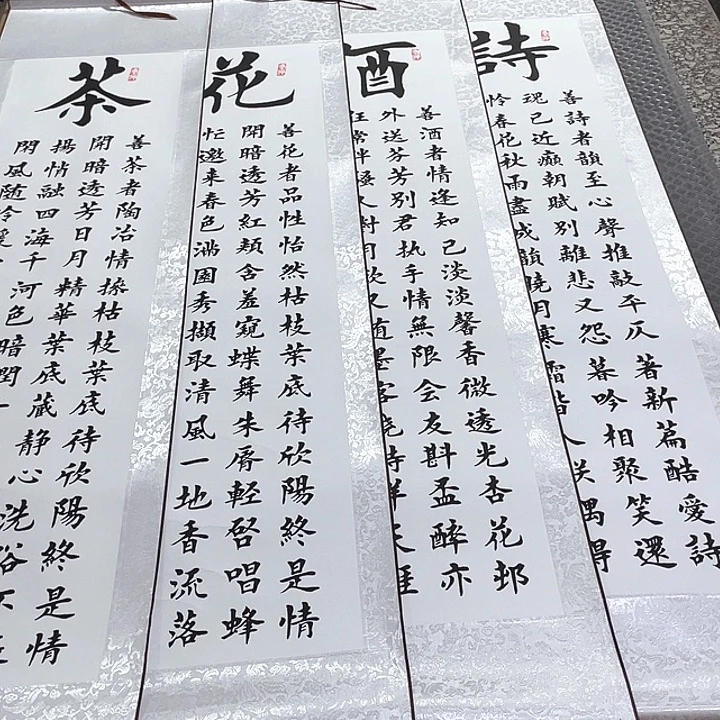 詩
善詩者韻至心聲推敲平仄著新篇酷愛詩
現已近癲朝賦別離悲又怨暮吟相聚笑還
怜春花秋雨盡成韻曉月寒霜皆
偶得
酒
善酒者情逢知己淡淡馨香微透光杏花邨
外送芬芳別君执手情無限会友斟盃醉亦
狂常半
花
善花者品性怡然枯枝葉底待欣陽終是情
開暗透芳紅頬含羞窺蝶舞朱脣輕啓唱蜂
忙邀来春色滿園秀擷取清風一地香流落
茶
善茶者陶冶情操枯枝葉底待欣陽終是情
開暗透芳日月精華葉底蔵静心洗俗
揚情融四海千河色暗潤
開風随冷暖